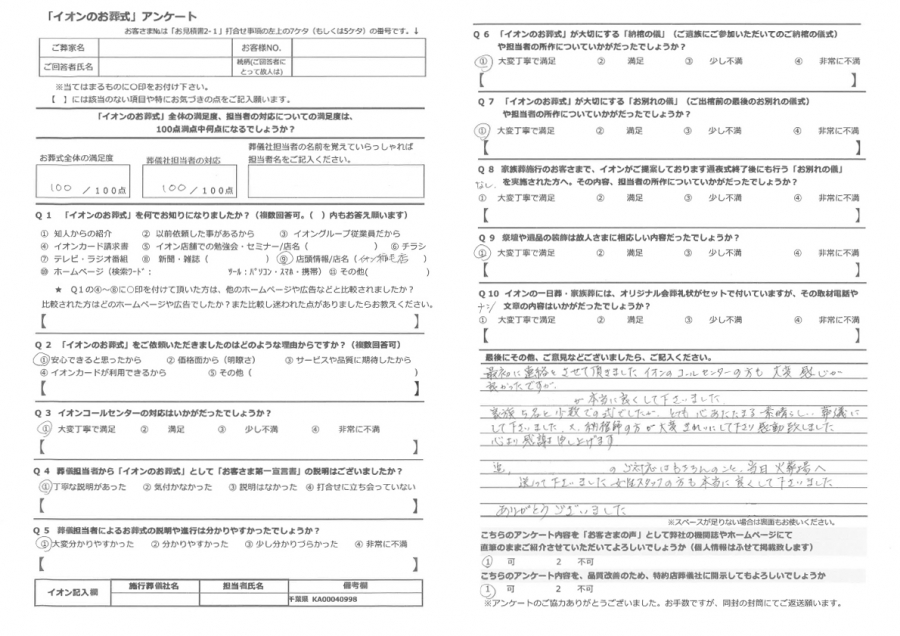 「イオンのお葬式」アンケート
お客さま№は「お見積書2-1」打合せ事項の左上の7ケタ（もしくは5ケタ）の番号です。↓
ご葬家名 お客様NO.
ご回答者氏名 続柄(ご回答者にとって故人は)
※当てはまるものに○印をお付け下さい。
【 】には該当のない項目や特にお気づきの点をご記入願います。
「イオンのお葬式」全体の満足度、担当者の対応についての満足度は、
100点満点中何点になるでしょうか？
葬儀社担当者の名前を覚えていらっしゃれば
お葬式全体の満足度 葬儀社担当者の対応 担当者名をご記入ください。
100 /100点 100 /100点
Q 1 「イオンのお葬式」を何でお知りになりましたか？（複数回答可。（ ）内もお答え願います）
① 知人からの紹介 ② 以前依頼した事があるから ③ イオングループ従業員だから
④ イオンカード請求書 ⑤ イオン店舗での勉強会・セミナー/店名（ ） ⑥ チラシ
⑦ テレビ・ラジオ番組 ⑧ 新聞・雑誌（ ） ⑨ 店頭情報/店名（イオン稲毛店）
⑩ ホームページ（検索ﾜｰﾄﾞ： ﾂｰﾙ：ﾊﾟｿｺﾝ・ｽﾏﾎ・携帯） ⑪ その他( )
比較された方はどのホームページや広告でしたか？また比較し迷われた点がありましたらお教えください。
【 】
Q 2 「イオンのお葬式」をご依頼いただきましたのはどのような理由からですか？（複数回答可）
①安心できると思ったから ② 価格面から（明瞭さ） ③ サービスや品質に期待したから
④ イオンカードが利用できるから ⑤ その他（ ）
【 】
Q 3 イオンコールセンターの対応はいかがだったでしょうか？
① 大変丁寧で満足 ② 満足 ③ 少し不満 ④ 非常に不満
【 】
Q 4 葬儀担当者から「イオンのお葬式」として「お客さま第一宣言書」の説明はございましたか？
①丁寧な説明があった ② 気付かなかった ③ 説明はなかった ④ 打合せに立ち会っていない
【 】
Q 5 葬儀担当者によるお葬式の説明や進行は分かりやすかったでしょうか？
①大変分かりやすかった ② 分かりやすかった ③ 少し分かりづらかった ④ 非常に不満
【 】
イオン記入欄 施行葬儀社名 担当者氏名 備考欄
千葉県 KA00040998
Q 6 「イオンのお葬式」が大切にする「納棺の儀」（ご遺族にご参加いただいてのご納棺の儀式）
や担当者の所作についていかがだったでしょうか？
① 大変丁寧で満足 ② 満足 ③ 少し不満 ④ 非常に不満
【 】
Q 7 「イオンのお葬式」が大切にする「お別れの儀」（ご出棺前の最後のお別れの儀式）
や担当者の所作についていかがだったでしょうか？
① 大変丁寧で満足 ② 満足 ③ 少し不満 ④ 非常に不満
【 】
Q 8 家族葬施行のお客さまで、イオンがご提案しております通夜式終了後にも行う「お別れの儀」
なし を実施された方へ。その内容、担当者の所作についていかがだったでしょうか？
① 大変丁寧で満足 ② 満足 ③ 少し不満 ④ 非常に不満
【 】
Q 9 祭壇や遺品の装飾は故人さまに相応しい内容だったでしょうか？
① 大変丁寧で満足 ② 満足 ③ 少し不満 ④ 非常に不満
【 】
Q 10 イオンの一日葬・家族葬には、オリジナル会葬礼状がセットで付いていますが、その取材電話や
ナシ 文章の内容はいかがだったでしょうか？
① 大変丁寧で満足 ② 満足 ③ 少し不満 ④ 非常に不満
【 】
最後にその他、ご意見などございましたら、ご記入ください。
最初に連絡をさせて頂きましたイオンのコールセンターの方も 大変 感じが
良かったですが、
が本当に良くして下さいました。
家族5名と少数での式でしたが、とても心あたたまる素晴らしい葬儀に
して下さいました。又、納棺師の方が大変きれいにして下さり感動致しました
心より感謝申し上げます
の対応はもちろんのこと、当日火葬場へ
下さいました女性スタッフの方も本当に良くして下さいました
ありがとうございました
※スペースが足りない場合は裏面もお使いください。
こちらのアンケート内容を「お客さまの声」として弊社の機関誌やホームページにて
直筆のままご紹介させていただいてよろしいでしょうか（個人情報はふせて掲載致します）
1 可 2 不可
こちらのアンケート内容を、品質改善のため、特約店葬儀社に開示してもよろしいでしょうか
1 可 2 不可
※アンケートのご協力ありがとうございました。お手数ですが、同封の封筒にてご返送願います。